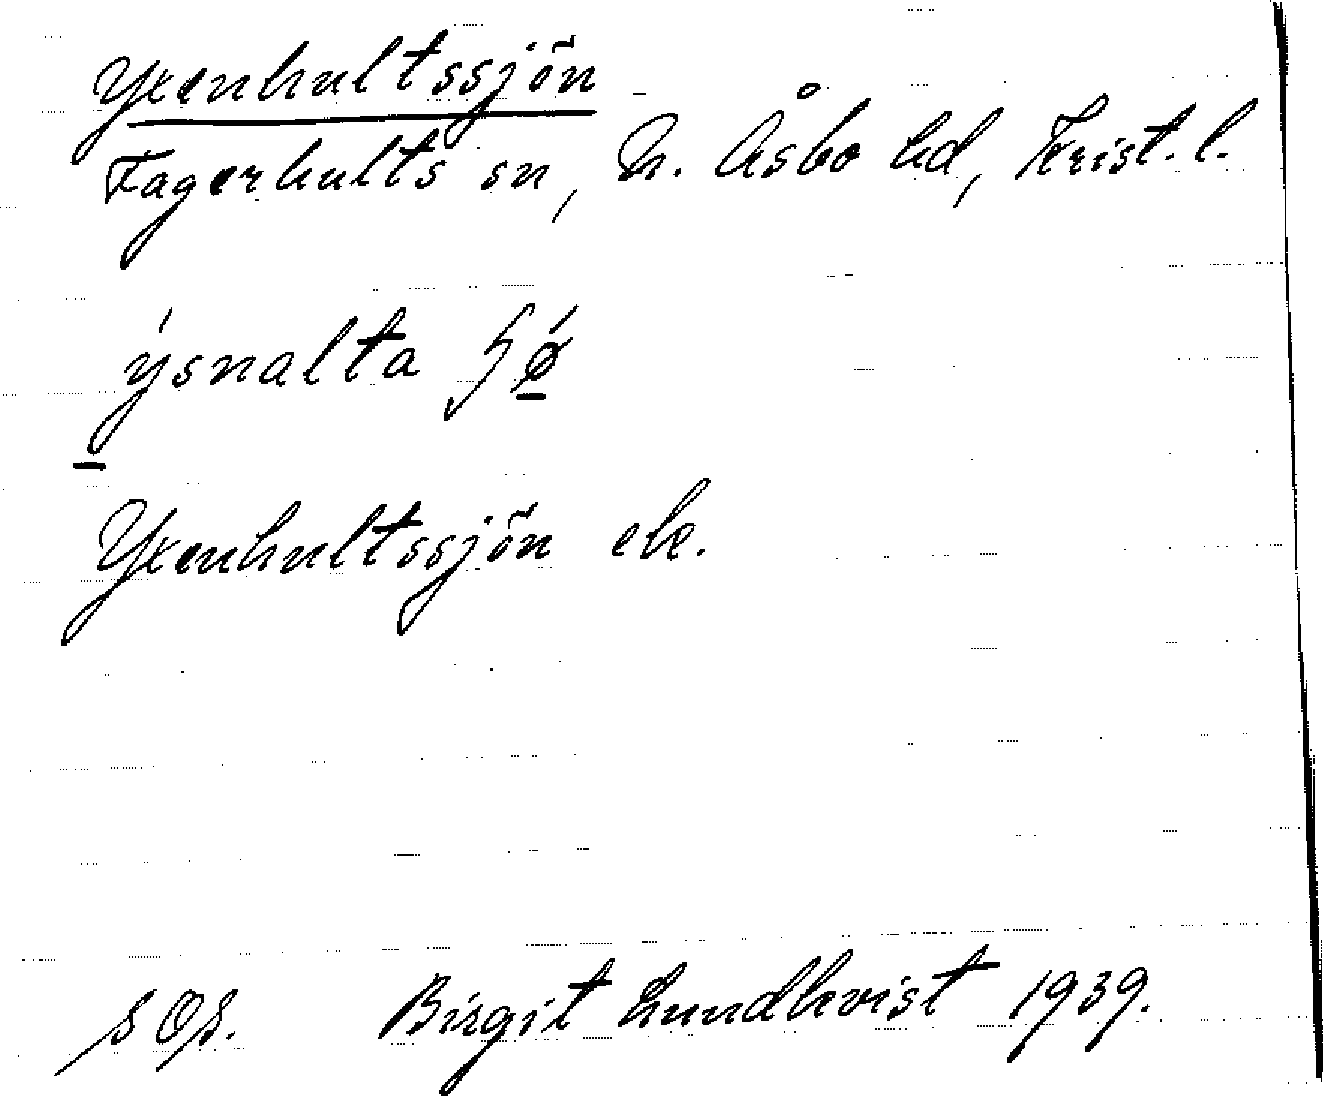 Yxenhultssjön
Fagerhults sn, N. Åsbo hd, Krist. l.
ýsnalta ɧǿ
Yxenhultssjön ek.
Birgit Lundkvist 1939.